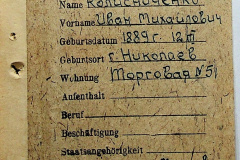 Name Колисниченко
Vorname Иван Михайлович
Geburtsdatum 1889 г. 12/III
Geburtsort г. Николаев
Wohnung Торговая № 51
Aufenthalt
Beruf
Beschäftigung
Staatsangehörigkeit